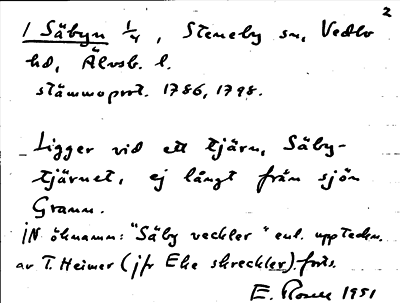 2
1 Säbyn 1/4, Steneby sn, Vedbo
hd, Älvsb. l.
stämmoprot. 1786, 1798.
Ligger vid ett tjärn, Säby-
tjärnet, ej långt från sjön
Grann.
IN öknamn: "Säby veckler" enl. uppteckn.
av T. Heimer (jfr Ehe skreckler) forts.
E. 1951